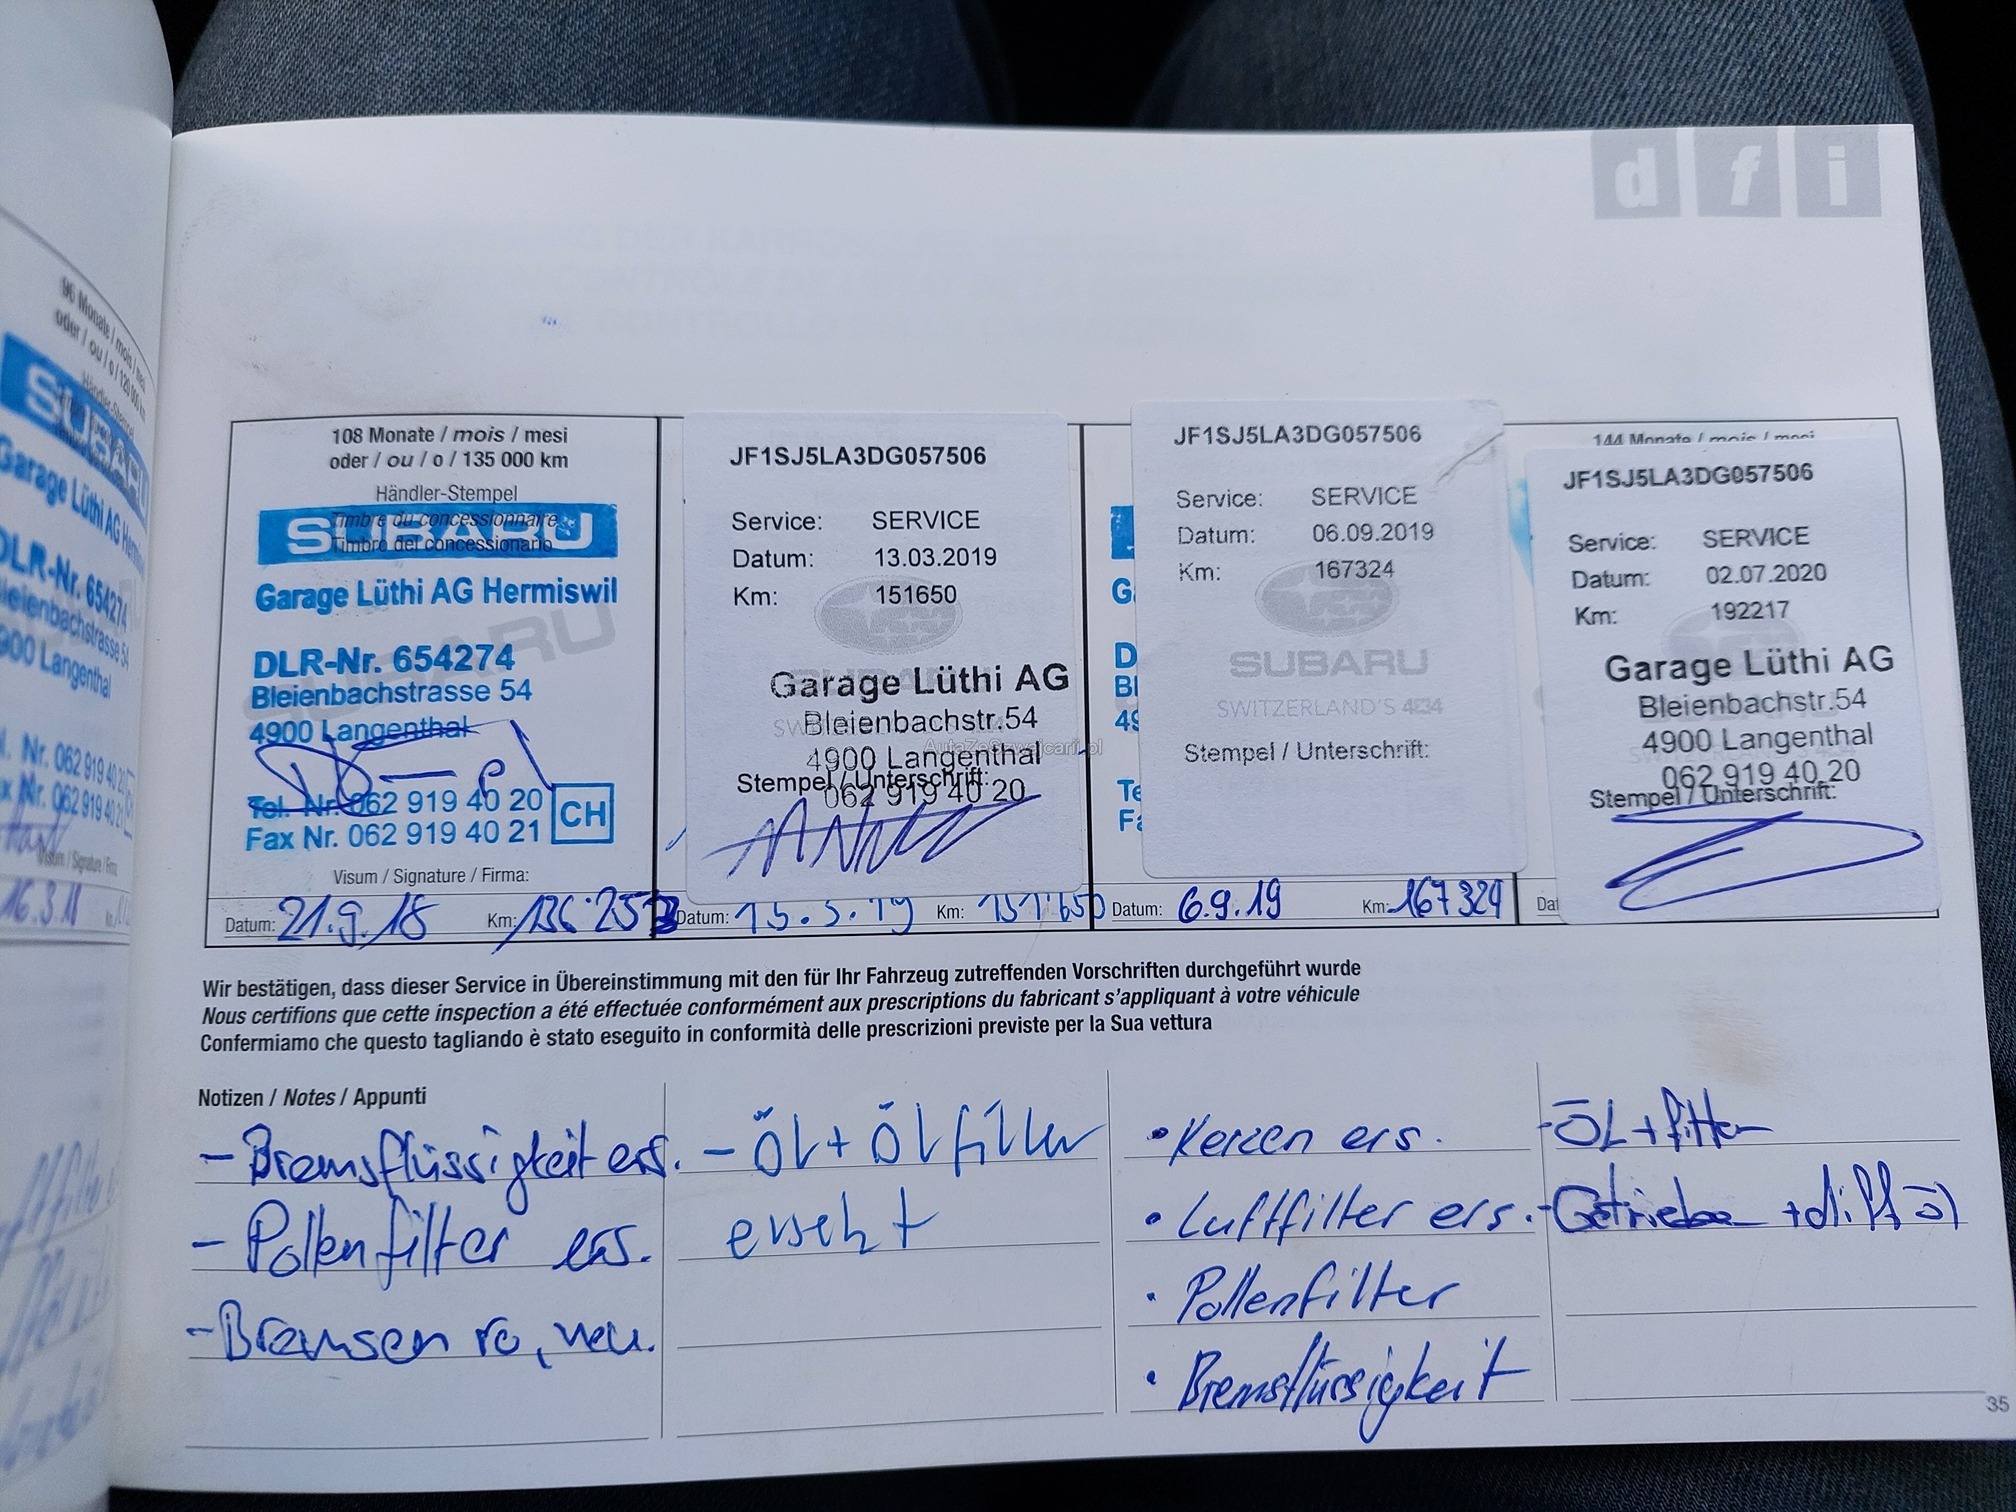 d f i
96 Monate / mois / mesi
oder / ou / o / 120 000 km
Händler-Stempel
SUBARU
Garage Lüthi AG Hermiswil
DLR-Nr. 654274
Bleienbachstrasse 54
4900 Langenthal
Nr. 062 919 40 20
Nr. 062 919 40 21
Visum / Signature / Firma
16.3.18
108 Monate / mois / mesi
oder / ou / o / 135 000 km
Händler-Stempel
Timbre du concessionnaire
Timbro del concessionario
SUBARU
Garage Lüthi AG Hermiswil
SUBARU
DLR-Nr. 654274
Bleienbachstrasse 54
4900 Langenthal
Tel. Nr. 062 919 40 20
Fax Nr. 062 919 40 21
CH
Visum / Signature / Firma:
Datum: 21.9.18 Km: 136'253
JF1SJ5LA3DG057506
Service: SERVICE
Datum: 13.03.2019
Km: 151650
Garage Lüthi AG
Bleienbachstr.54
4900 Langenthal
Stempel / Unterschrift:
062 919 40 20
Datum: 13.3.19 Km: 151'650
JF1SJ5LA3DG057506
Service: SERVICE
Datum: 06.09.2019
Km: 167324
SUBARU
SWITZERLAND'S 4x4
Stempel / Unterschrift:
Datum: 6.9.19 Km: 167324
144 Monate / mois / mesi
JF1SJ5LA3DG057506
Service: SERVICE
Datum: 02.07.2020
Km: 192217
Garage Lüthi AG
Bleienbachstr.54
4900 Langenthal
062 919 40 20
Stempel / Unterschrift:
AutaZeSzwajcarii.pl
Wir bestätigen, dass dieser Service in Übereinstimmung mit den für Ihr Fahrzeug zutreffenden Vorschriften durchgeführt wurde
Nous certifions que cette inspection a été effectuée conformément aux prescriptions du fabricant s'appliquant à votre véhicule
Confermiamo che questo tagliando è stato eseguito in conformità delle prescrizioni previste per la Sua vettura
Notizen / Notes / Appunti
- Bremsflüssigkeit ers.
- Pollenfilter ers.
- Bremsen ro, neu.
- Öl + Ölfilter
ersetzt
• Kerzen ers.
• Luftfilter ers.
• Pollenfilter
• Bremsflüssigkeit
- ÖL + filter
- Getriebe + diff öl
35